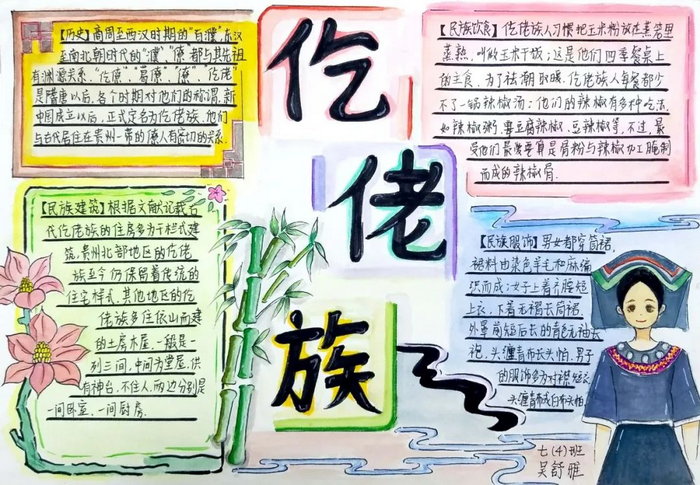 【历史】商周至西汉时期的“百濮”东汉
至南北朝时代的“濮”“僚”都与其先祖
有渊源关系。“仡僚”“葛僚”“僚”“仡佬”
是隋唐以后,各个时期对他们的称谓。新
中国成立以后,正式定名为仡佬族。他们
与古代居住在贵州一带的僚人有密切的关系。
仡
佬
族
【民族饮食】仡佬族人习惯把玉米粉放在蒸笼里
蒸熟,叫做玉米干饭;这是他们四季餐桌上
的主食,为了祛潮取暖,仡佬族人每餐都少
不了一锅辣椒汤:他们的辣椒有多种吃法,
如辣椒粥、
豆腐辣椒、豆辣椒等,不过,最
受他们最爱要算是骨粉与辣椒加工腌制
而成的辣椒骨.
【民族建筑】根据文献记载古
代仡佬族的住房多为干栏式建
筑,贵州北部地区的仡佬
族至今仍保留着传统的
住宅样式.其他地区的仡
佬族多住依山而建
的土房木屋,一般是一
列三间,中间为堂屋,供
有神台,不住人,两边分别是
一间卧室,一间厨房.
【民族服饰】男女都穿筒裙,
裙料由染色羊毛和麻编
织而成;女子上着齐腰短
上衣,下着无褶长筒裙.
外罩前短后长的青色无袖长
袍,头缠青布长头帕,男子
的服饰多为对襟短衣.
头缠青布或白布头帕.
七(4)班
吴舒雅